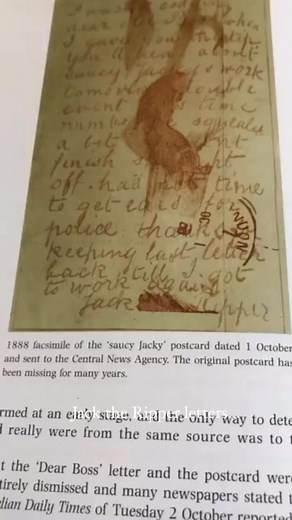 I was not codding
dear old Boss when
I gave you the tip
you'll hear about
saucy Jacky's work
tomorrow double
event this time
number one squealed
a bit couldn't
finish straight
off. had not time
to get ears for
police thanks for
keeping last letter
back till I got
to work again
Jack the Ripper
1888 facsimile of the ‘saucy Jacky’ postcard dated 1 October
and sent to the Central News Agency. The original postcard has
been missing for many years.
Jack the Ripper letters
rmed at an early stage, and the only way to dete
l really were from the same source was to t
t the ‘Dear Boss’ letter and the postcard were
tirely dismissed and many newspapers stated t
elian Daily Times of Tuesday 2 October reported